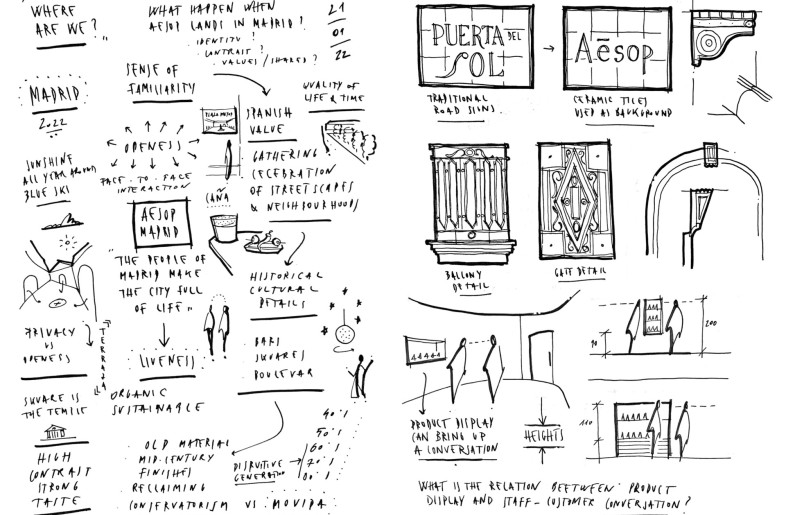 "WHERE
ARE WE?"
MADRID
2022
SUNSHINE
ALL YEAR AROUND
BLUE SKI
PRIVACY
VS
OPENESS
SQUARE IS
THE TEMPLE
HIGH
CONTRAST
STRONG
TASTE
WHAT HAPPEN WHEN
AESOP LANDS IN MADRID?
IDENTITY?
CONTRAST?
VALUES/SHARED?
21
01
22
SENSE OF
FAMILIARITY
OPENESS
FACE-TO-FACE
INTERACTION
AESOP
MADRID
"THE PEOPLE OF
MADRID MAKE
THE CITY FULL
OF LIFE"
LIVENESS
TERRAZA
ORGANIC
SUSTAINABLE
OLD MATERIAL
MID-CENTURY
FINISHES
RECLAIMING
CONSERVATORISM VS. MOVIDA
PLAZA MAYOR
SPANISH
VALUE
QUALITY OF
LIFE & TIME
GATHERING?
CELEBRATION
OF STREETSCAPES
& NEIGHBOURHOODS
CAÑA
HISTORICAL
CULTURAL
DETAILS
BARS
SQUARES
BOULEVAR
DISRUTIVE
GENERATION
40's
50's
60's
70's
80's
PUERTA DEL
SOL
TRADITIONAL
ROAD SIGNS.
Aēsop
CERAMIC TILES
USED AS BACKGROUND
BALLONY
DETAIL
GATE DETAIL
PRODUCT DISPLAY
CAN BRING UP
A CONVERSATION
HEIGHTS
90
200
110
WHAT IS THE RELATION BEETWEEN PRODUCT
DISPLAY AND STAFF-CUSTOMER CONVERSATION?